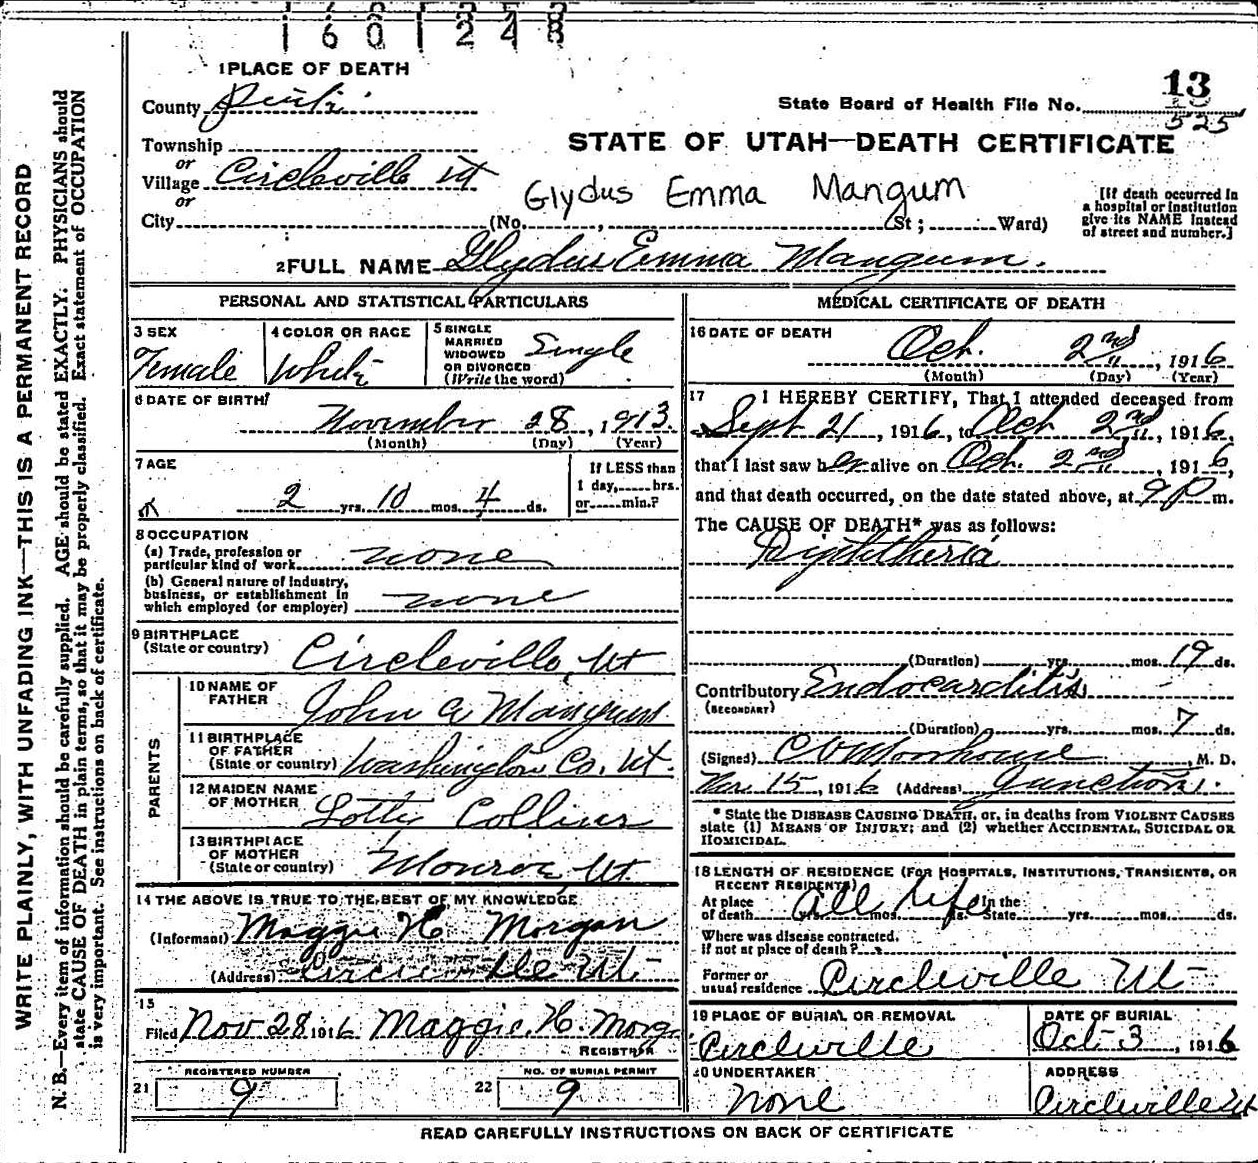 1601248
1 PLACE OF DEATH
County Piute
13
State Board of Health File No. 525
Township
or
Village Circleville Ut
or
STATE OF UTAH—DEATH CERTIFICATE
Glydus Emma Mangum
City (No. , St ; Ward)
[If death occurred in
a hospital or institution
give its NAME instead
of street and number.]
2 FULL NAME Glydus Emma Mangum.
PERSONAL AND STATISTICAL PARTICULARS
3 SEX
Female
4 COLOR OR RACE
White
5 SINGLE
MARRIED
WIDOWED
OR DIVORCED
(Write the word)
Single
6 DATE OF BIRTH
November 28, 1913.
(Month) (Day) (Year)
7 AGE
2 yrs. 10 mos. 4 ds.
If LESS than
1 day, hrs.
or min.?
8 OCCUPATION
(a) Trade, profession or
particular kind of work none
(b) General nature of industry,
business, or establishment in
which employed (or employer) none
9 BIRTHPLACE
(State or country) Circleville, Ut
PARENTS
10 NAME OF
FATHER John A Mangum
11 BIRTHPLACE
OF FATHER
(State or country) Washington Co. Ut.
12 MAIDEN NAME
OF MOTHER Lottie Collins
13 BIRTHPLACE
OF MOTHER
(State or country) Monroe, Ut.
14 THE ABOVE IS TRUE TO THE BEST OF MY KNOWLEDGE
(Informant) Maggie H Morgan
(Address) Circleville Ut
15
Filed Nov 28 1916 Maggie H. Morg
REGISTRAR
21 REGISTERED NUMBER
9
22 NO. OF BURIAL PERMIT
9
MEDICAL CERTIFICATE OF DEATH
16 DATE OF DEATH
Oct. 2nd, 1916
(Month) (Day) (Year)
17 I HEREBY CERTIFY, That I attended deceased from
Sept 21, 1916, to Oct 2nd, 1916,
that I last saw her alive on Oct. 2nd, 1916,
and that death occurred, on the date stated above, at 9 P m.
The CAUSE OF DEATH* was as follows:
Diphtheria
(Duration) yrs. mos. 19 ds.
Contributory Endocarditis
(SECONDARY)
(Duration) yrs. mos. 7 ds.
(Signed) C O Moorhouse, M. D.
Nov. 15, 1916 (Address) Junction.
* State the DISEASE CAUSING DEATH, or, in deaths from VIOLENT CAUSES
state (1) MEANS OF INJURY; and (2) whether ACCIDENTAL, SUICIDAL OR
HOMICIDAL.
18 LENGTH OF RESIDENCE (FOR HOSPITALS, INSTITUTIONS, TRANSIENTS, OR
RECENT RESIDENTS)
At place In the
of death yrs. mos. ds. State yrs. mos. ds.
All life
Where was disease contracted,
if not at place of death?
Former or
usual residence Circleville Ut
19 PLACE OF BURIAL OR REMOVAL
Circleville
DATE OF BURIAL
Oct 3, 1916
20 UNDERTAKER
None
ADDRESS
Circleville Ut
READ CAREFULLY INSTRUCTIONS ON BACK OF CERTIFICATE
WRITE PLAINLY, WITH UNFADING INK—THIS IS A PERMANENT RECORD
N. B.—Every item of information should be carefully supplied. AGE should be stated EXACTLY. PHYSICIANS should
state CAUSE OF DEATH in plain terms, so that it may be properly classified. Exact statement of OCCUPATION
is very important. See instructions on back of certificate.